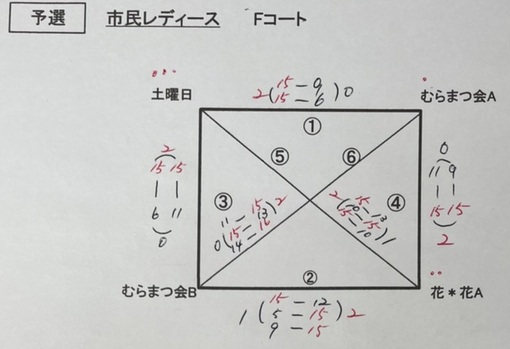 予選 市民レディース Fコート
土曜日 2(15-9 15-6)0 むらまつ会A
①
⑤ ⑥
2(15-6 15-11)0
③ ④
0(11-15 15-13 14-16)2
0(11-15 9-15)2
②
むらまつ会B 1(15-12 5-15 9-15)2 花*花A